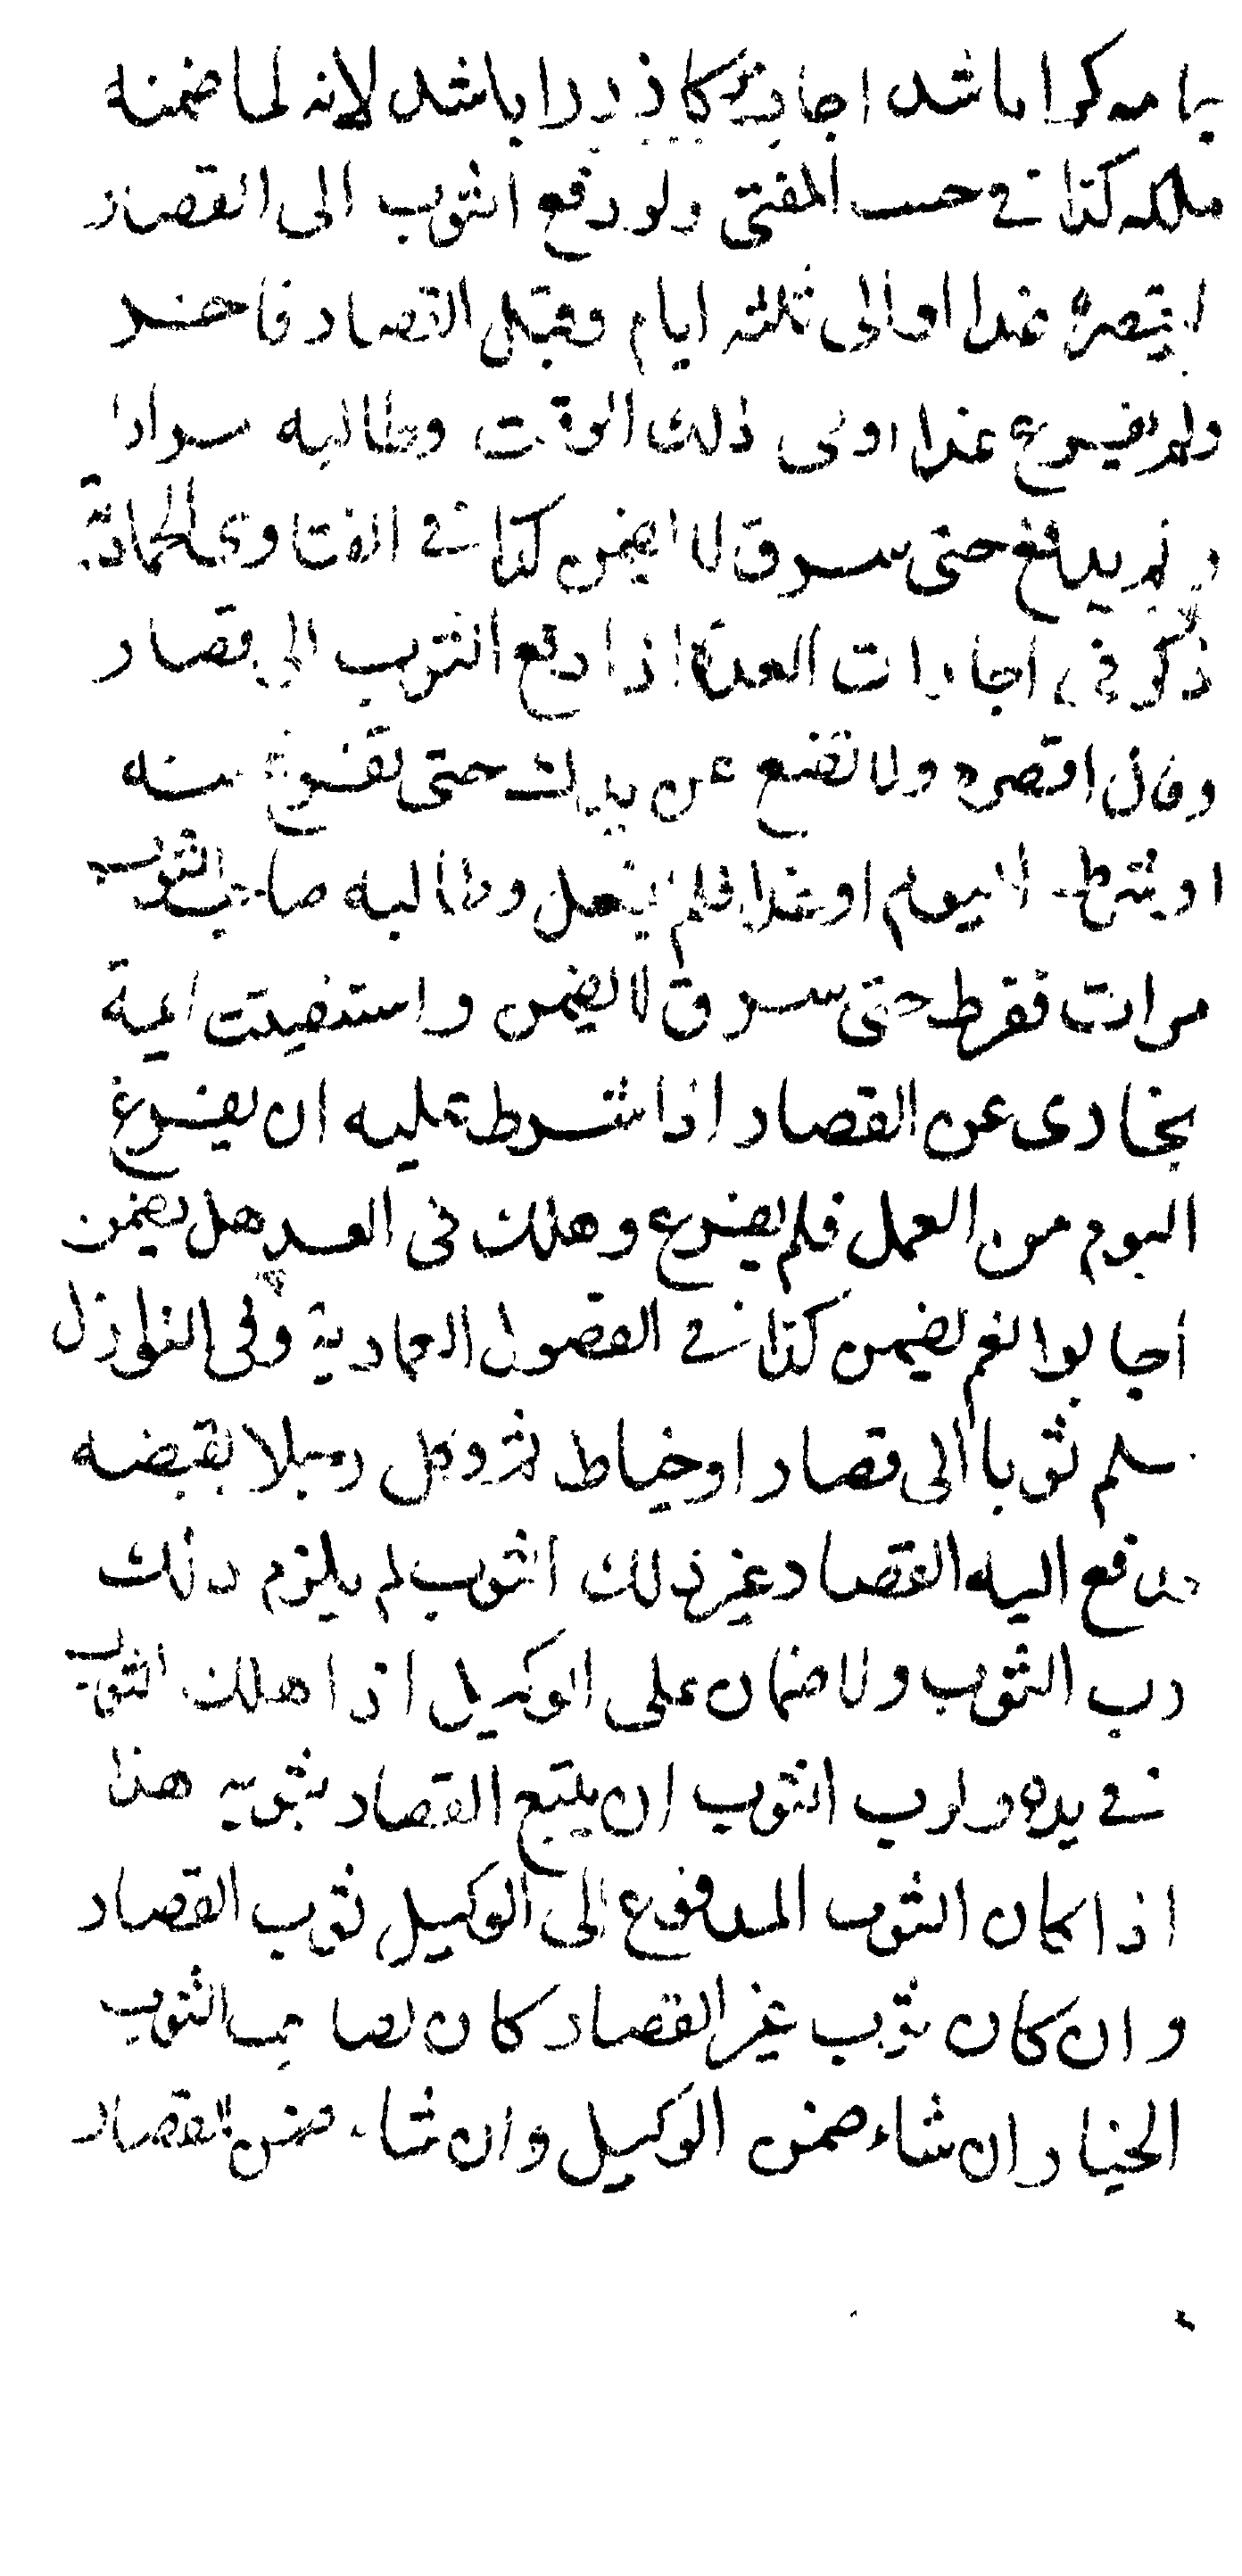 باشد اجا باشد لانه لما ضمنه
ملكه كذا في حسب المفتى ولو دفع الثوب الى القصار
ليقصره غدا او الى ثلثه ايام فقبل القصار فاخر
ولم يفرغ غدا او فى ذلك الوقت وطالبه مرارا
ولم يدفع حتى سرق لا يضمن كذا في الفتاوى الحمادية
ذكر في اجارات العدة اذا دفع الثوب الى قصار
وقال اقصره ولا تضع عن يدك حتى تفرغ منه
او شرط اليوم او غدا فلم يفعل وطالبه صاحب الثوب
مرات ففرط حتى سرق لا يضمن واستفيت ايمة
بخارى عن القصار اذا شرط عليه ان يفرغ
اليوم من العمل فلم يفرغ وهلك فى الغد هل يضمن
اجابوا نعم يضمن كذا في الفصول العمادية وفى النوازل
سلم ثوبا الى قصار او خياط ثم وكل رجلا بقبضه
فدفع اليه القصار غير ذلك الثوب لم يلزم ذلك
رب الثوب ولا ضمان على الوكيل اذا هلك الثوب
في يده ولرب الثوب ان يتبع القصار بثوبه هذا
اذا كان الثوب المدفوع الى الوكيل ثوب القصار
وان كان ثوب غير القصار كان لصاحب الثوب
الخيار ان شاء ضمن الوكيل وان شاء ضمن القصار